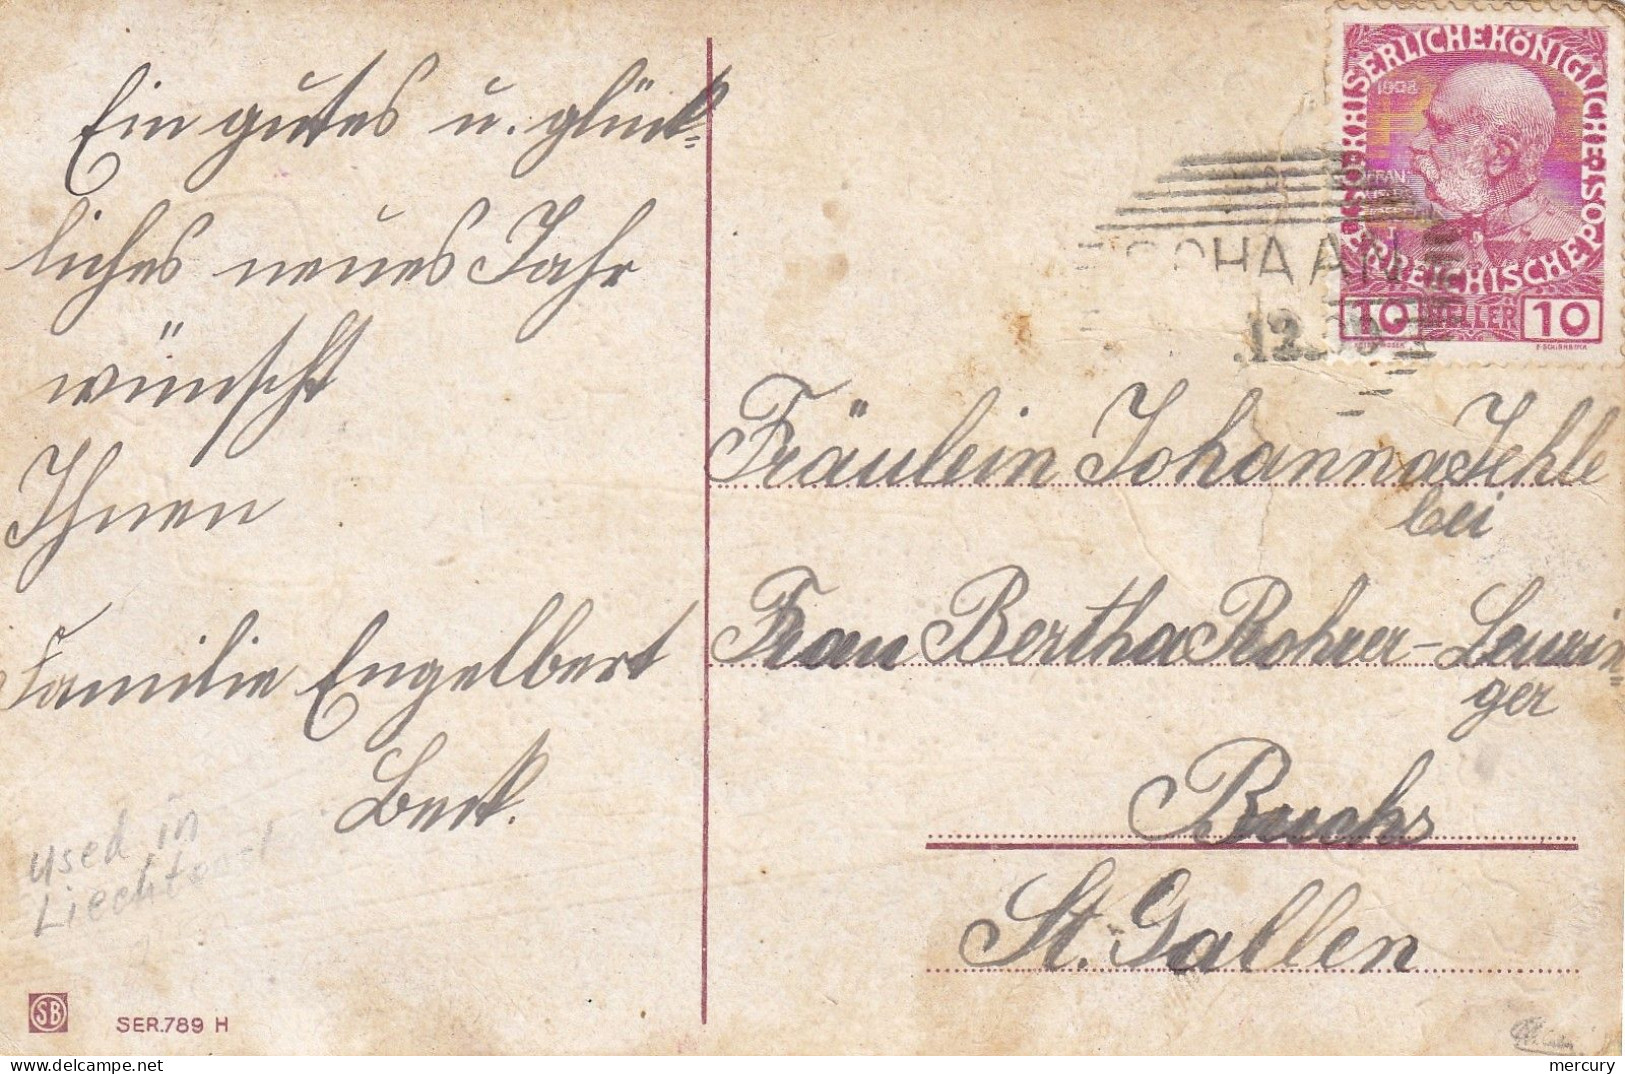 Ein gutes u. glück-
liches neues Jahr
wünscht
Ihnen
Familie Engelbert
Beck.
used in
SER.789 H
SB
KAISERLICHE KÖNIGLICHE ÖSTERREICHISCHE POST
1908
10 HELLER 10
SCHAAN
12
Fräulein Johanna Jehle
bei
Frau Bertha Rohrer-Leuzin-
ger
Buchs
St. Gallen
mercury